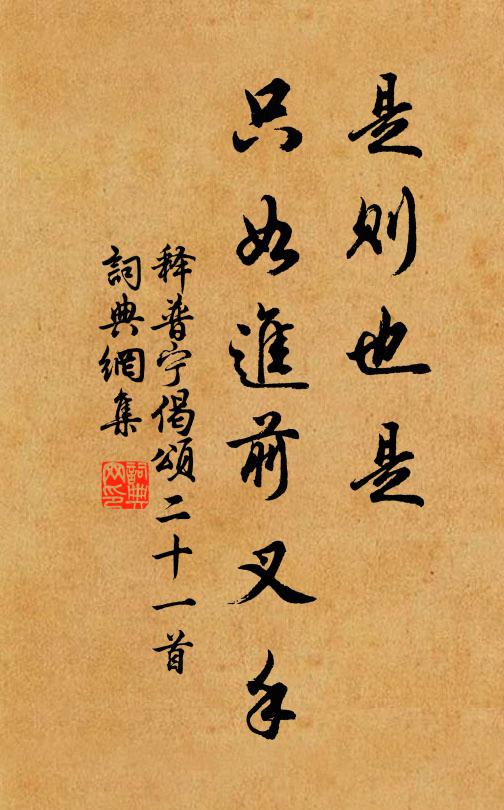 是则也是
只如進前叉手
释普宁偈頌二十一首
詞典網集
詞典网印